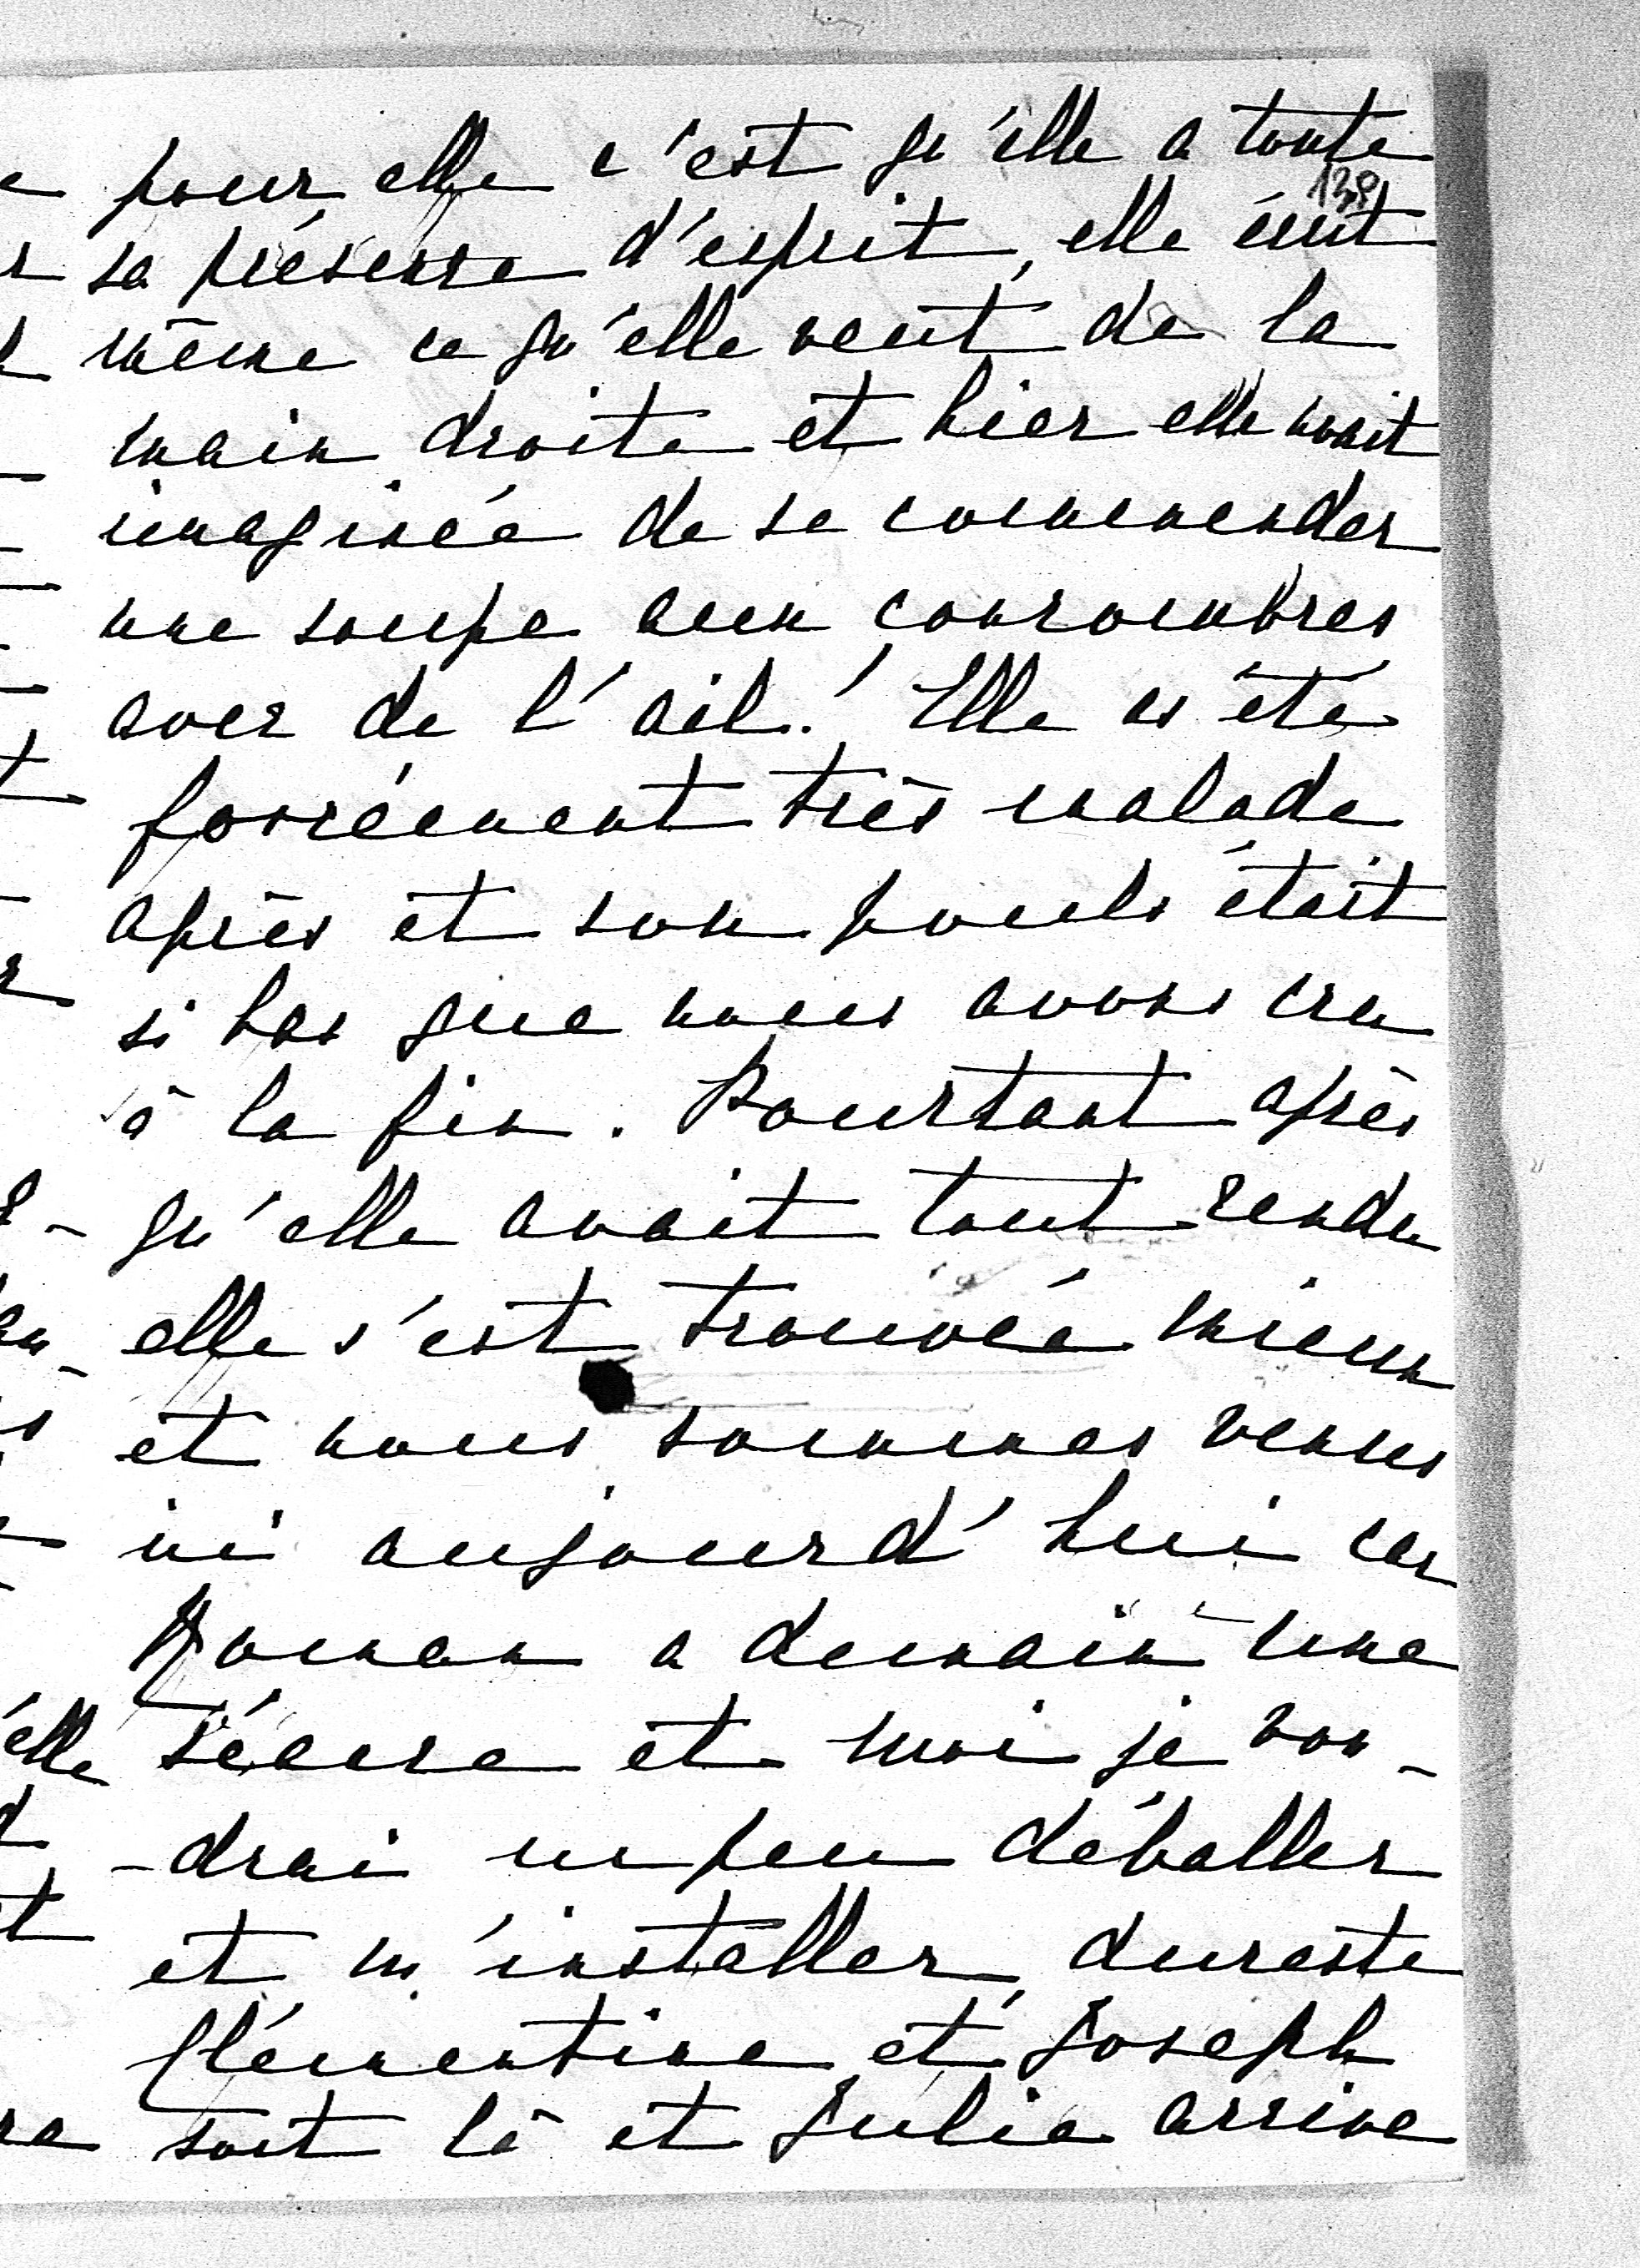 pour elle c'est qu'elle a toute
138
sa présence d'esprit, elle écrit
même ce qu'elle veut de la
main droite et hier elle avait
imaginée de se commender
une soupe aux concombres
avec de l'ail! Elle a été
forcément très malade
après et son pouls était
si bas que nous avons cru
à la fin. Pourtant après
qu'elle avait tout rendu
elle s'est trouvée mieux
et nous sommes venus
ici aujourd'hui car
Roman a demain une
séance et moi je vou-
-drai un peu déballer
et m'installer, dureste
Clémentine et Joseph
sont là et Julie arrive